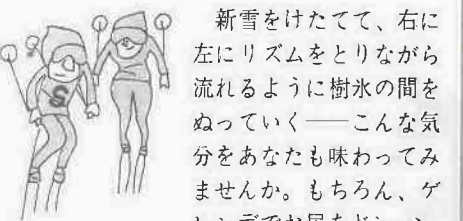 新雪をけたてて、右に
左にリズムをとりながら
流れるように樹氷の間を
ぬっていく――こんな気
分をあなたも味わってみ
ませんか。もちろん、ゲ
S